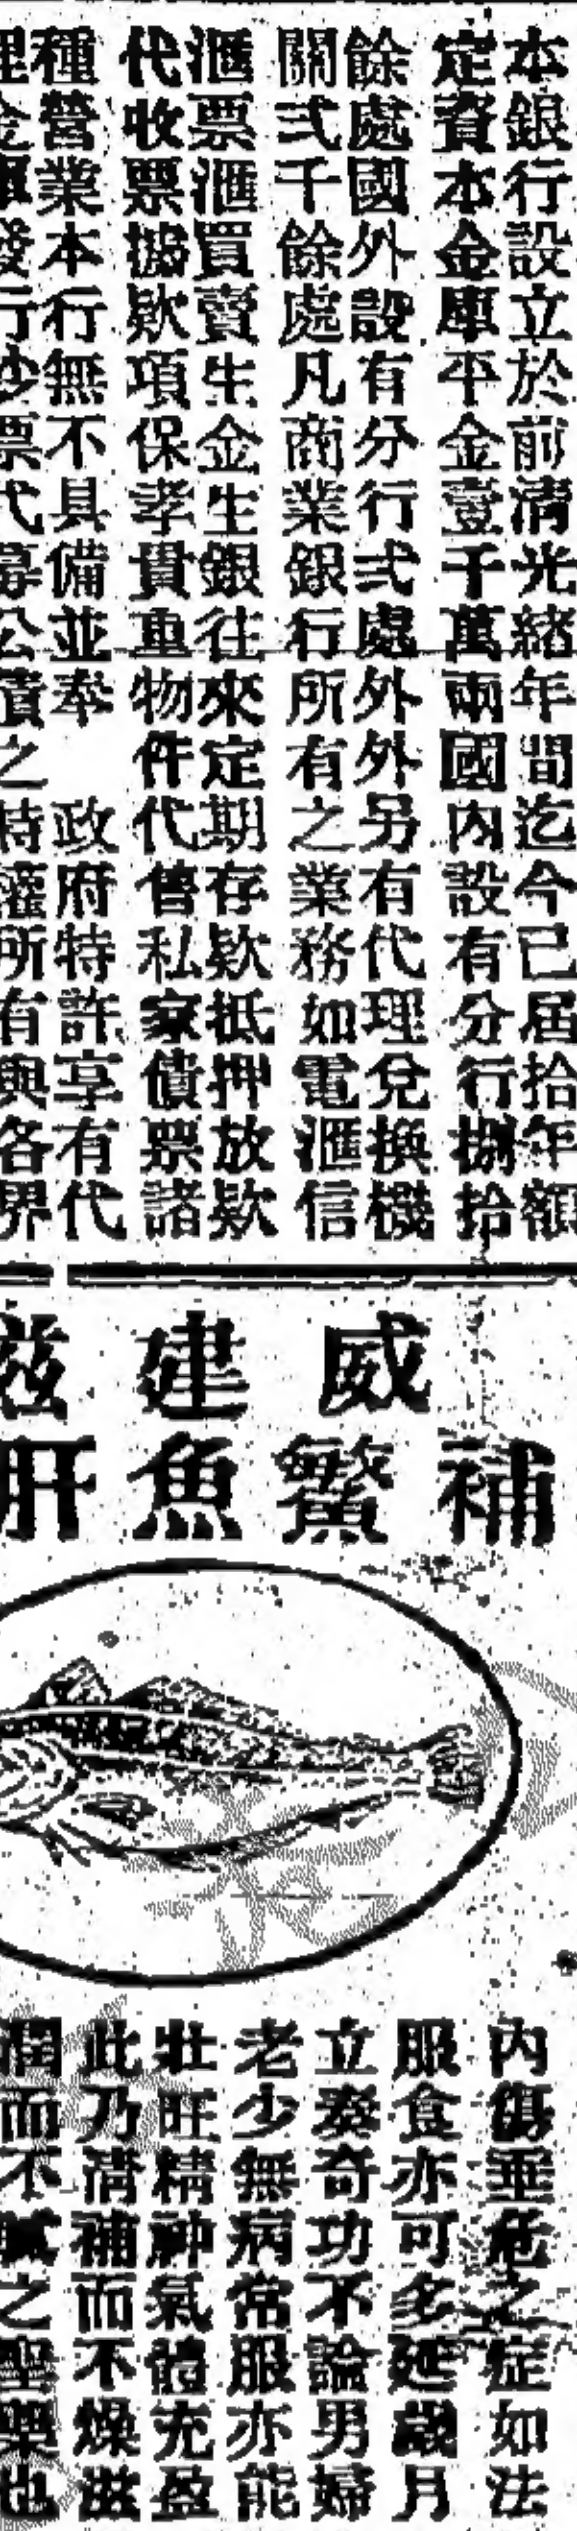 本銀行設立於前清光緒年間迄今已屆拾年額
定資本金庫平金壹千萬兩國內設有分行捌拾
餘處國外設有分行弍處外外另有代理兌換機
關弍千餘處凡商業銀行所有之業務如電滙信
滙票滙買賣生金生銀往來定期存欵抵押放欵
代收票據欵項保孝貴重物件代售私家債票諸
種營業本行無不具備並奉 政府特許享有代
理金庫發行鈔票代募公債之 特權所有與各界
威建
補鱉魚肝
內傷垂危之症如法
服食亦可多延歲月
立奏奇功不論男婦
老少無病常服亦能
壯旺精神氣體充盈
此乃清補而不燥滋
潤而不膩之聖藥也